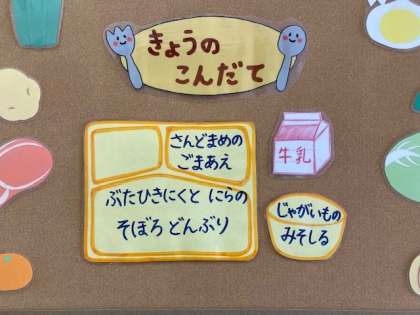 きょうの
こんだて
さんどまめの
ごまあえ
ぶたひきにくと にらの
そぼろ どんぶり
牛乳
じゃがいもの
みそしる